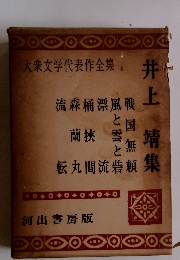 大衆文学代表作全集 4
井上靖集
戦国無頼
風と雲と砦
漂流
桶狭間
森蘭丸
流転
河出書房版